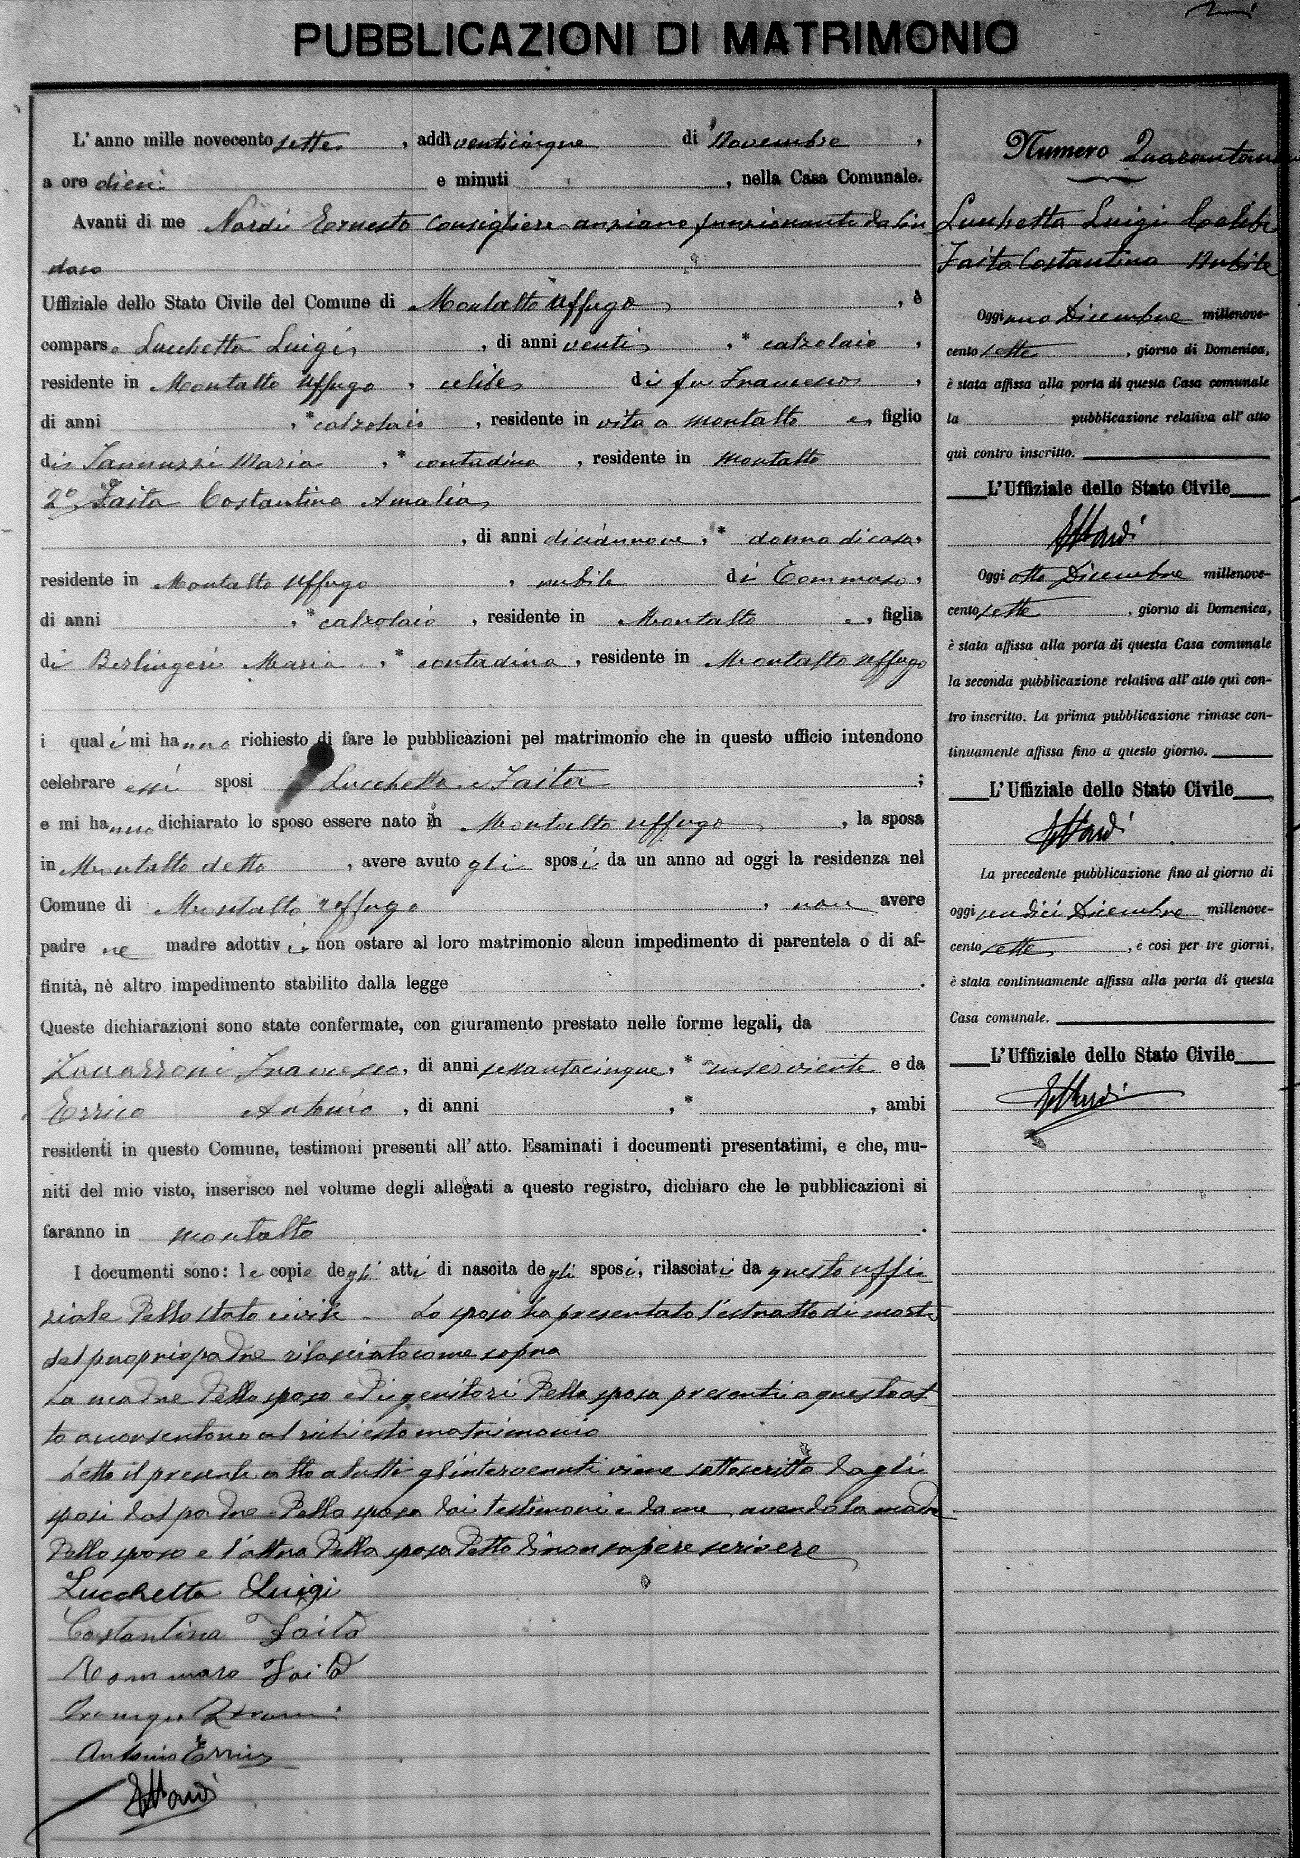 PUBBLICAZIONI DI MATRIMONIO
L'anno mille novecento sette, addì venticinque di Novembre,
a ore dieci e minuti , nella Casa Comunale.
Avanti di me Nardi Ernesto Consigliere anziano funzionante da Sin
daco
Uffiziale dello Stato Civile del Comune di Montalto Uffugo, è
comparso Lucchetta Luigi, di anni venti, * calzolaio,
residente in Montalto Uffugo, celibe di fu Francesco,
di anni , * calzolaio, residente in vita a Montalto e, figlio
di Iannuzzi Maria, * contadina, residente in Montalto
2° Faita Costantina Amalia,
, di anni diciannove, * donna di casa,
residente in Montalto Uffugo, nubile di Tommaso,
di anni , * calzolaio, residente in Montalto e, figlia
di Berlingeri Maria, * contadina, residente in Montalto Uffugo
i quali mi hanno richiesto di fare le pubblicazioni pel matrimonio che in questo ufficio intendono
celebrare essi sposi Lucchetta e Faita ;
e mi hanno dichiarato lo sposo essere nato in Montalto Uffugo, la sposa
in Montalto detto, avere avuto gli sposi da un anno ad oggi la residenza nel
Comune di Montalto Uffugo, non avere
padre ne madre adottivi, non ostare al loro matrimonio alcun impedimento di parentela o di af-
finità, nè altro impedimento stabilito dalla legge .
Queste dichiarazioni sono state confermate, con giuramento prestato nelle forme legali, da
Francesco, di anni sessantacinque, * inserviente e da
Errico Antonio, di anni , * , ambi
residenti in questo Comune, testimoni presenti all'atto. Esaminati i documenti presentatimi, e che, mu-
niti del mio visto, inserisco nel volume degli allegati a questo registro, dichiaro che le pubblicazioni si
faranno in Montalto .
I documenti sono: le copie degli atti di nascita degli sposi, rilasciati da questo uffi-
ziale dello stato civile - Lo sposo ha presentato l'estratto di morte
del proprio padre rilasciato come sopra
La madre dello sposo ed i genitori della sposa presenti a questo at-
to acconsentono al richiesto matrimonio
Letto il presente atto a tutti gl'intervenuti viene sottoscritto dagli
sposi dal padre della sposa dai testimoni e da me avendo la madre
dello sposo e l'altra della sposa detto di non sapere scrivere
Lucchetta Luigi
Costantina Faita
Tommaso Faita
Antonio Errico
Numero
Lucchetta Luigi Celibe
Faita Costantina Nubile
Oggi uno Dicembre millenove-
cento sette, giorno di Domenica,
è stata affissa alla porta di questa Casa comunale
la pubblicazione relativa all'atto
qui contro inscritto.
L'Uffiziale dello Stato Civile
ENardi
Oggi otto Dicembre millenove-
cento sette, giorno di Domenica,
è stata affissa alla porta di questa Casa comunale
la seconda pubblicazione relativa all'atto qui con-
tro inscritto. La prima pubblicazione rimase con-
tinuamente affissa fino a questo giorno.
L'Uffiziale dello Stato Civile
ENardi
La precedente pubblicazione fino al giorno di
oggi undici Dicembre millenove-
cento sette, e così per tre giorni,
è stata continuamente affissa alla porta di questa
Casa comunale.
L'Uffiziale dello Stato Civile
ENardi